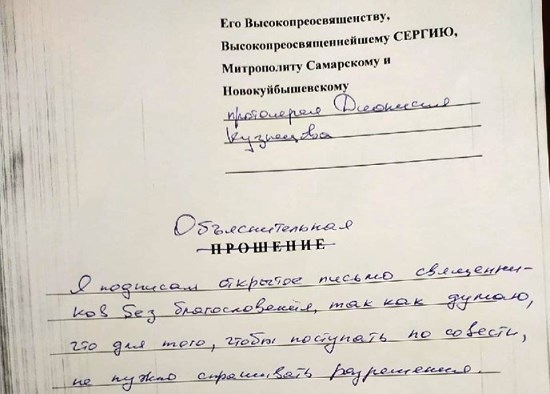 Его Высокопреосвященству,
Высокопреосвященнейшему СЕРГИЮ,
Митрополиту Самарскому и
Новокуйбышевскому
протоиерея Дионисия
Кузнецова
Объяснительная
ПРОШЕНИЕ
Я подписал открытое письмо священни-
ков без благословения, так как думаю,
что для того, чтобы поступать по совести,
не нужно спрашивать разрешения.